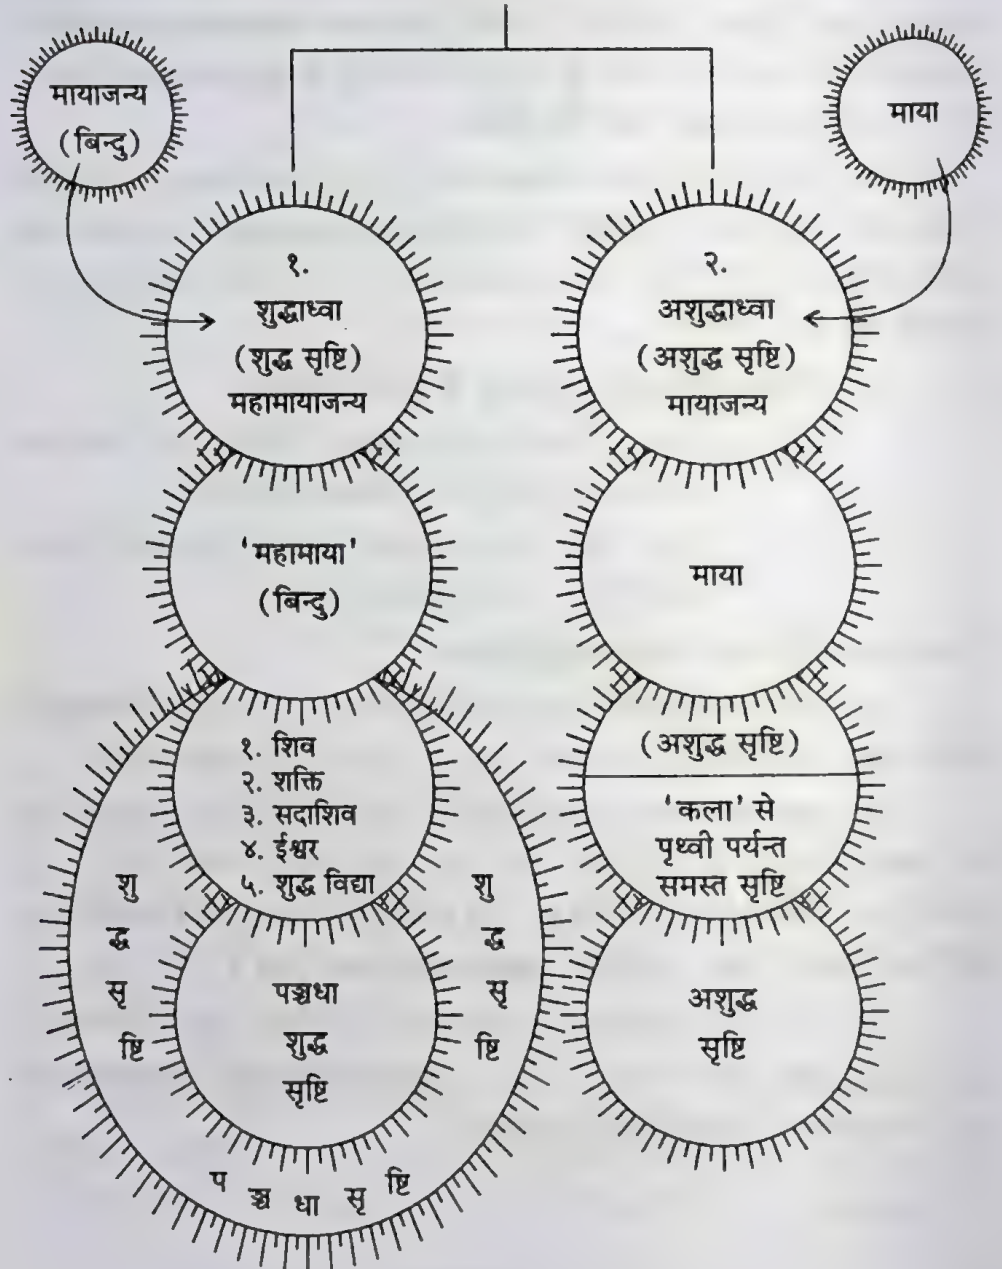 मायाजन्य
(बिन्दु)
माया
१.
शुद्धाध्वा
(शुद्ध सृष्टि)
महामायाजन्य
२.
अशुद्धाध्वा
(अशुद्ध सृष्टि)
मायाजन्य
'महामाया'
(बिन्दु)
माया
१. शिव
२. शक्ति
३. सदाशिव
४. ईश्वर
५. शुद्ध विद्या
(अशुद्ध सृष्टि)
'कला' से
पृथ्वी पर्यन्त
समस्त सृष्टि
शुद्ध सृष्टि
पञ्चधा
शुद्ध
सृष्टि
शुद्ध सृष्टि
पञ्चधा सृष्टि
अशुद्ध
सृष्टि